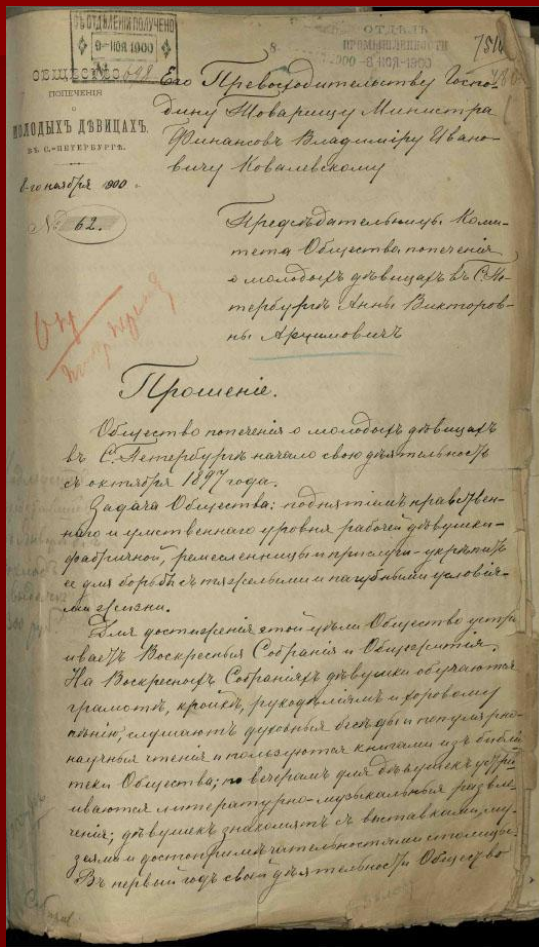 9 НОЯ 1900
ОТДѢЛЪ
ПРОМЫШЛЕННОСТИ
8 НОЯ 1900
ОБЩЕСТВО
ПОПЕЧЕНІЯ
О
МОЛОДЫХЪ ДѢВИЦАХЪ
ВЪ С.-ПЕТЕРБУРГѢ.
8-го ноября 1900 г.
№ 62.
Его Превосходительству Госпо-
дину Товарищу Министра
Финансовъ Владиміру Ивано-
вичу Ковалевскому
Предсѣдательницы Коми-
тета Общества попеченія
о молодыхъ дѣвицахъ въ С. Пе-
тербургѣ Анны Викторов-
ны Арцимовичъ
Прошеніе.
Общество попеченія о молодыхъ дѣвицахъ
въ С. Петербургѣ начало свою дѣятельность
съ октября 1897 года.
Задача Общества: поднятіемъ нравствен-
наго и умственнаго уровня рабочей дѣвушки-
фабричной, ремесленницы и прислуги - укрѣпить
ее для борьбы съ тяжелыми и пагубными условія-
ми жизни.
Для достиженія этой цѣли Общество устра
иваетъ Воскресныя Собранія и Общежитія.
На Воскресныхъ Собраніяхъ дѣвушки обучаются
грамотѣ, кройкѣ, рукодѣліямъ и хоровому
пѣнію, слушаютъ духовныя бесѣды и популярно-
научныя чтенія и пользуются книгами изъ библіо
теки Общества; по вечерамъ для дѣвушекъ устра
иваются литературно-музыкальныя развле-
ченія; дѣвушекъ знакомятъ съ выставками, му-
зеями и достопримѣчательностями столицы.
Въ первый годъ своей дѣятельности Общество